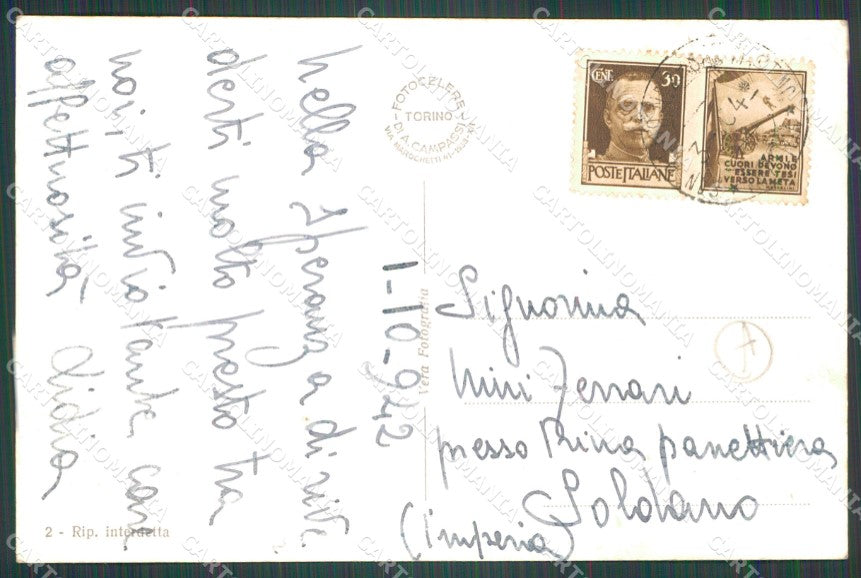 nella speranza di rive
derti molto presto tra
noi, ti invio tante care
affettuosità Lidia
1-10-942
FOTOCELERE
TORINO
DI A. CAMPASSI
Vera Fotografia
2 - Rip. interdetta
CENT. 30
POSTE ITALIANE
ARMI E
CUORI DEVONO
ESSERE TESI
VERSO LA META
Signorina
Mini Ferrari
presso Rina panettiera
Soldano
(Imperia)
A
CARTOLINOMANIA